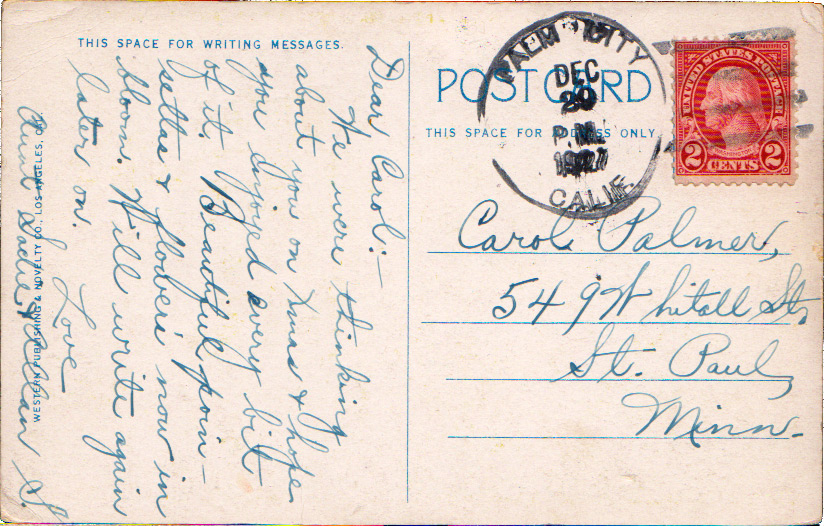 THIS SPACE FOR WRITING MESSAGES.
Dear Carol:—
We were thinking
about you on Xmas & hope
you enjoyed every bit
of it. Beautiful poin-
settas & flowers now in
bloom. Will write again
later on.
Love
Aunt Sadie & Allan S.
WESTERN PUBLISHING & NOVELTY CO., LOS ANGELES, CAL.
POST CARD
THIS SPACE FOR ADDRESS ONLY
PALM CITY
DEC
29
P.M.
1927
CALIF.
UNITED STATES POSTAGE
2 CENTS 2
Carol Palmer,
549 Whitall St,
St. Paul,
Minn.